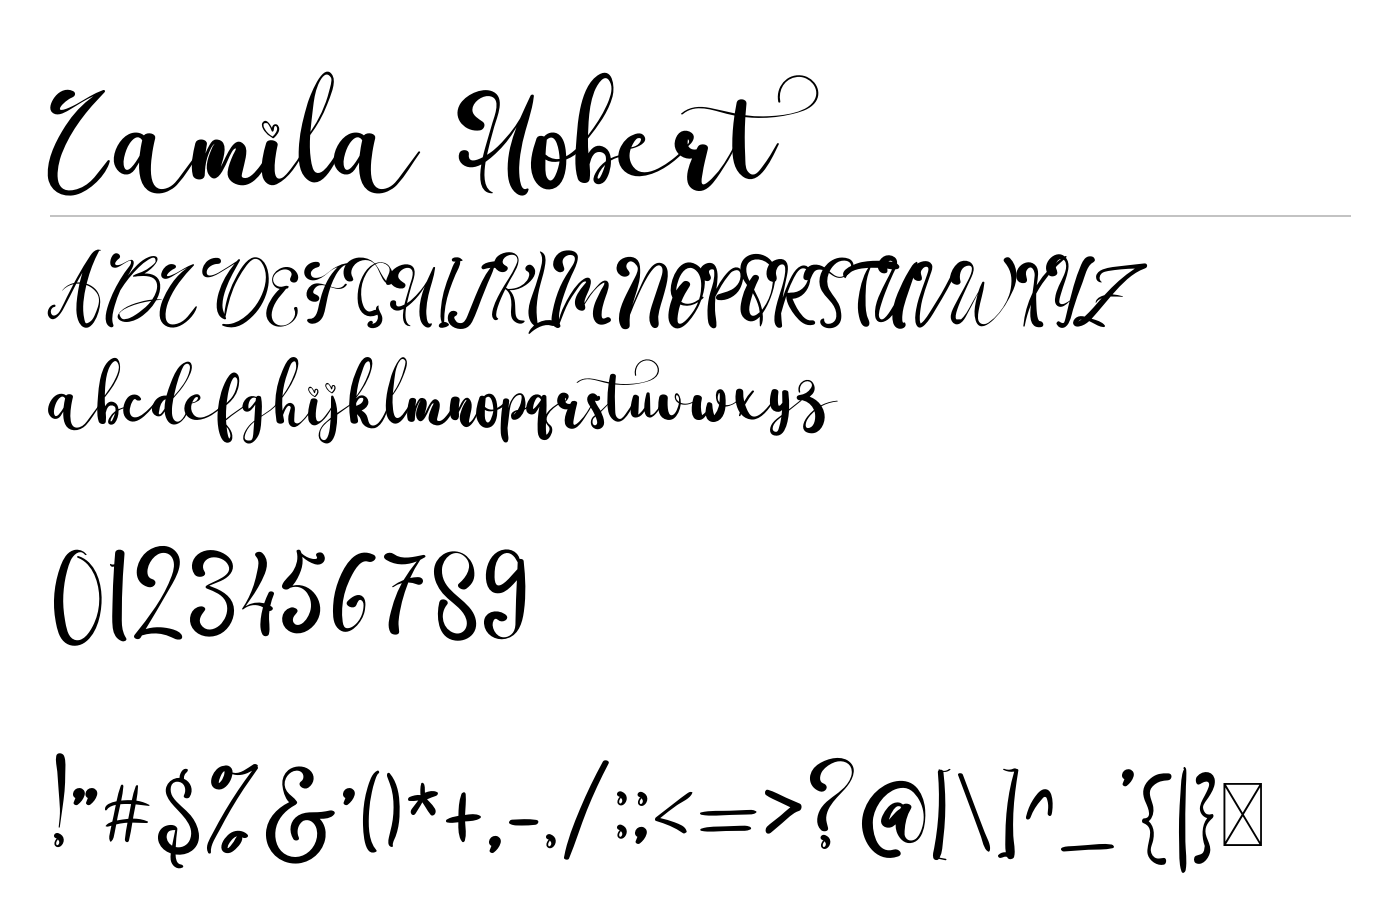 Camila Hobert
ABCDEFGHIJKLMNOPQRSTUVWXYZ
abcdefghijklmnopqrstuvwxyz
0123456789
!"#$%&'()*+,-./:;<=>?@[\]^_`{|}